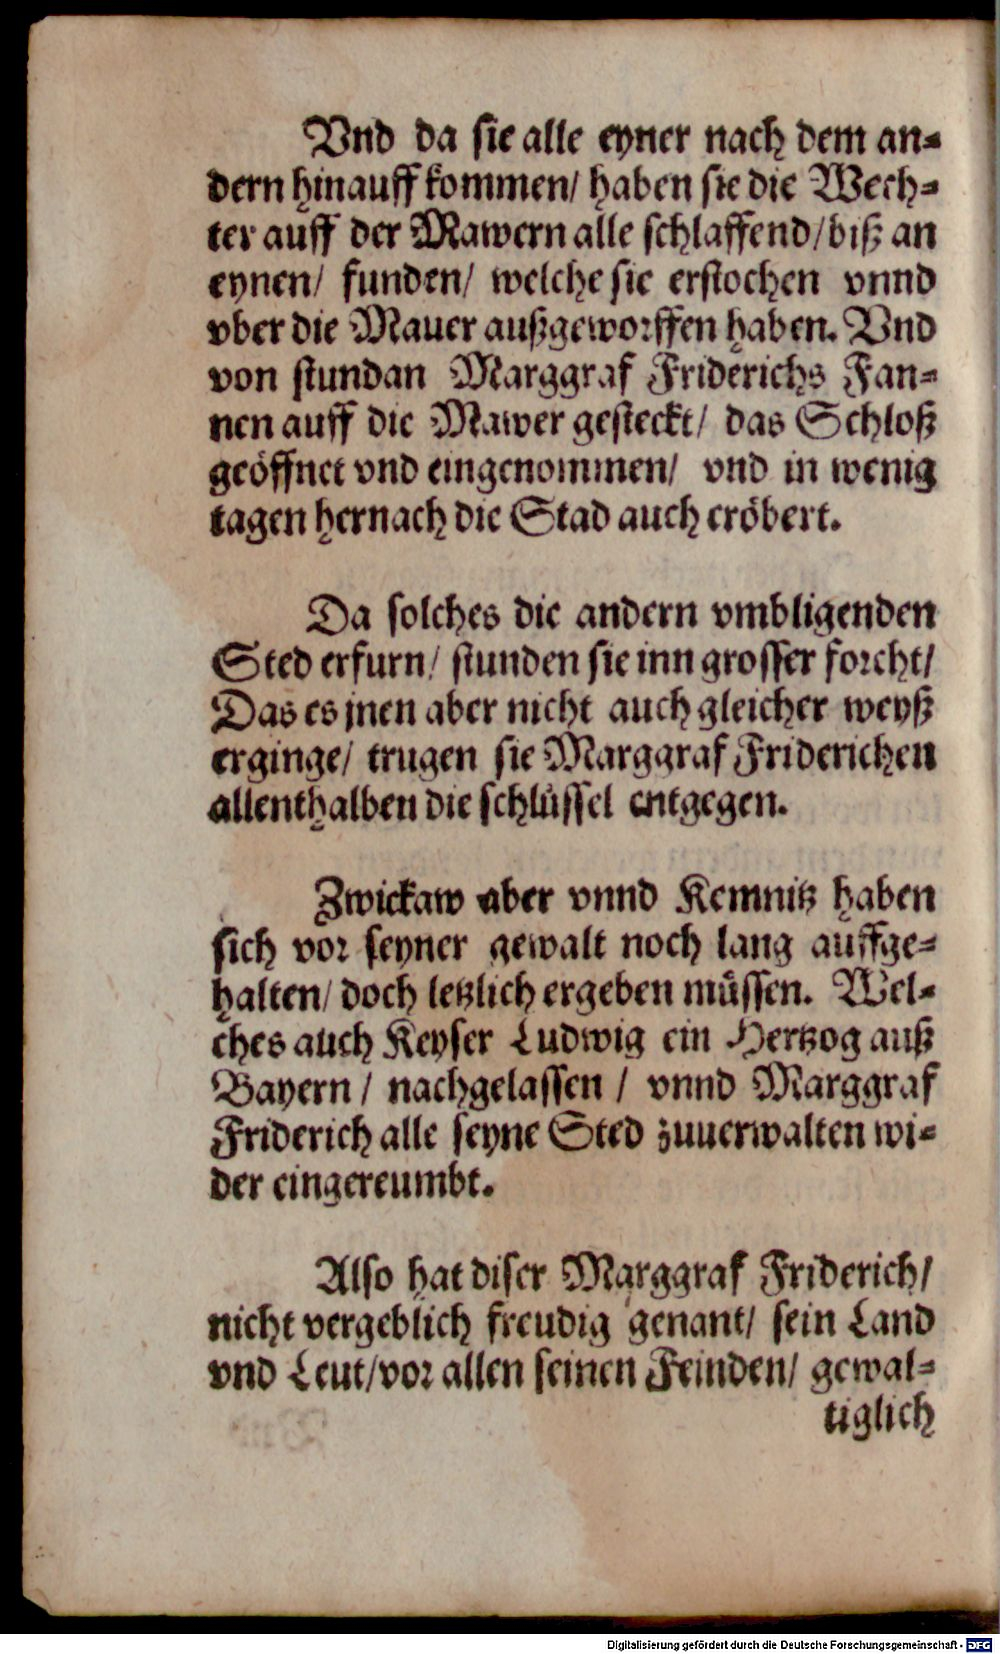 Vnd da sie alle eyner nach dem an-
dern hinauff kommen/ haben sie die Wech-
ter auff der Mawern alle schlaffend/ biß an
eynen/ funden/ welche sie erstochen vnnd
vber die Mauer außgeworffen haben. Vnd
von stundan Marggraf Friderichs Fan-
nen auff die Mawer gesteckt/ das Schloß
geöffnet vnd eingenommen/ vnd in wenig
tagen hernach die Stad auch eröbert.
Da solches die andern vmbligenden
Sted erfurn/ stunden sie inn grosser forcht/
Das es jnen aber nicht auch gleicher weyß
erginge/ trugen sie Marggraf Friderichen
allenthalben die schlüssel entgegen.
Zwickaw aber vnnd Kemnitz haben
sich vor seyner gewalt noch lang auffge-
halten/ doch letzlich ergeben müssen. Wel-
ches auch Keyser Ludwig ein Hertzog auß
Bayern/ nachgelassen/ vnnd Marggraf
Friderich alle seyne Sted zuuerwalten wi-
der eingereumbt.
Also hat diser Marggraf Friderich/
nicht vergeblich freudig genant/ sein Land
vnd Leut/ vor allen seinen Feinden/ gewal-
tiglich
Digitalisierung gefördert durch die Deutsche Forschungsgemeinschaft - DFG